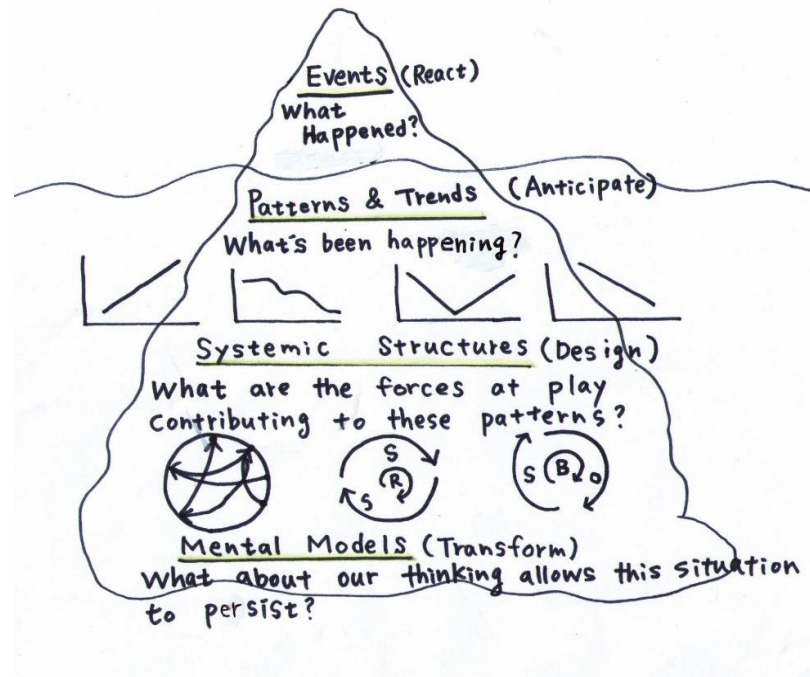 Events (React)
What
Happened?
Patterns & Trends (Anticipate)
What's been happening?
Systemic Structures (Design)
What are the forces at play
contributing to these patterns?
S
R
S
S
B
O
Mental Models (Transform)
What about our thinking allows this situation
to persist?